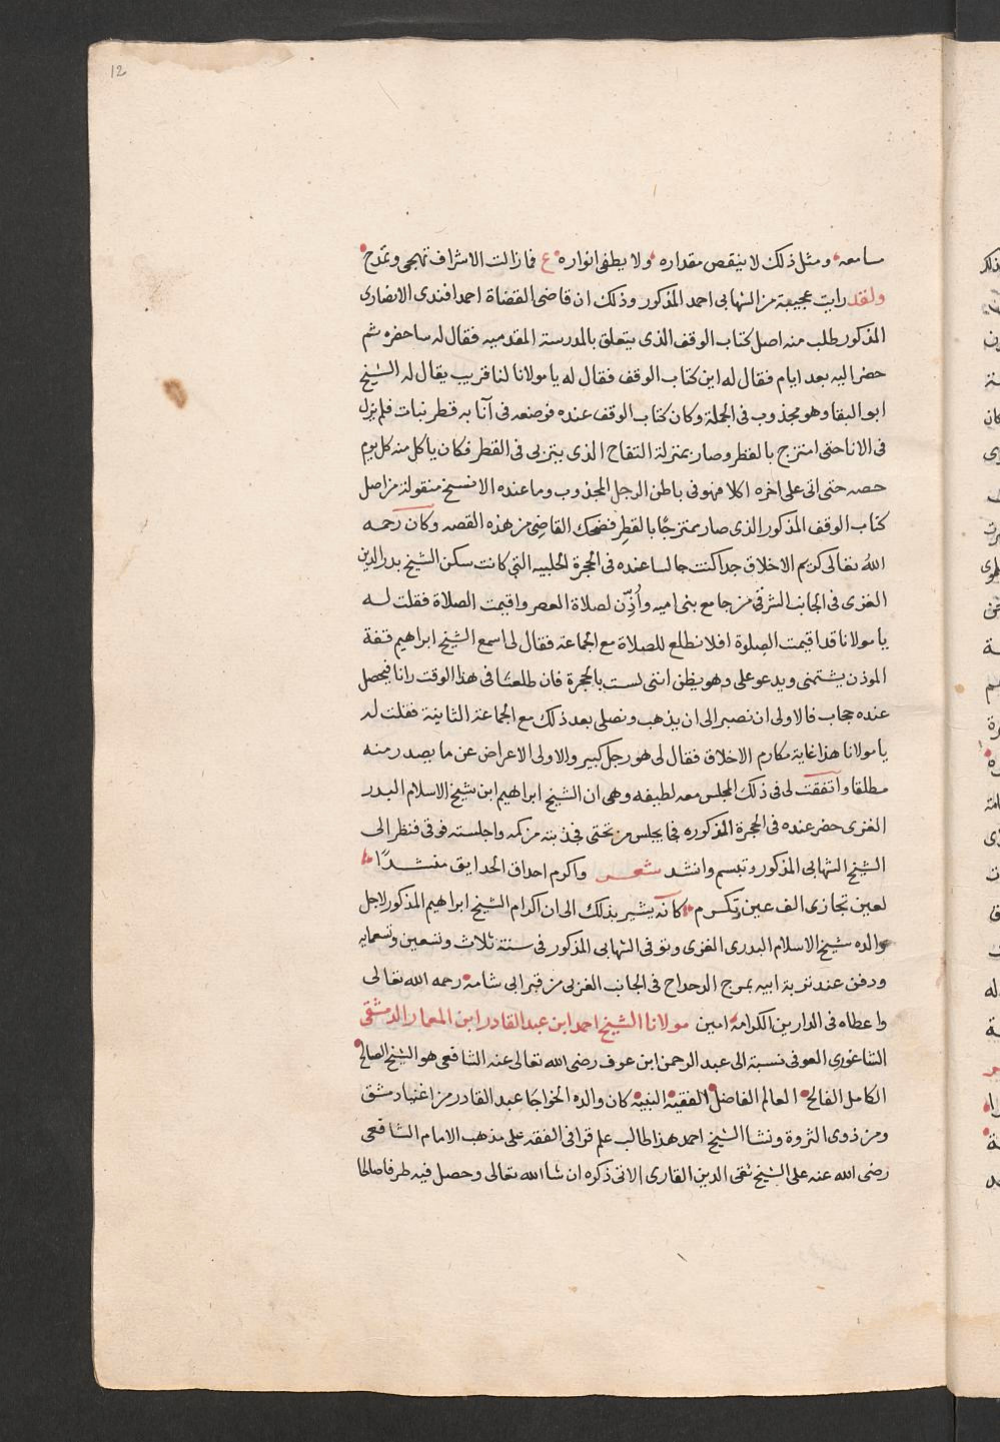 12
سامعه ومثل ذلك لا ينقص مقداره ولا يطفى انواره ع فما زالت الاشراف تهجى وتمدح
ولقد رايت عجيبة من الشهابى احمد المذكور وذلك ان قاضى القضاة احمد افندى الانصارى
المذكور طلب منه اصل كتاب الوقف الذى يتعلق بالمدرسة المقدميه فقال له ساحضره ثم
حضر اليه بعد ايام فقال له اين كتاب الوقف فقال له يا مولانا لنا قريب يقال له الشيخ
ابو البقا وهو مجذوب فى الجملة وكان كتاب الوقف عنده فوضعه فى آنا به قطر نبات فلم يزل
فى الانا حتى امتزج بالقطر وصار بمنزلة التفاح الذى يتربى فى القطر فكان ياكل منه كل يوم
حصه حتى اتى على اخره اكلا فهو فى باطن الرجل المجذوب وما عنده الا نسخ منقولة من اصل
كتاب الوقف المذكور الذى صار ممتزجًا بالقطر فضحك القاضى من هذه القصه وكان رحمه
الله تعالى كريم الاخلاق جدا كنت جالسا عنده فى الحجرة الحلبيه التى كانت سكن الشيخ بدر الدين
الغزى فى الجانب الشرقى من جامع بنى اميه وأُذّن لصلاة العصر واقيمت الصلاة فقلت له
يا مولانا قد اقيمت الصلوة افلا نطلع للصلاة مع الجماعة فقال لى اسمع الشيخ ابراهيم قتفة
الموذن يشتمنى ويدعو على وهو يظن اننى لست بالحجرة فان طلعنا فى هذا الوقت رانا فيحصل
عنده حجاب فالاولى ان نصبر الى ان يذهب ونصلى بعد ذلك مع الجماعة الثانية فقلت له
يا مولانا هذا غاية مكارم الاخلاق فقال لى هو رجل كبير والاولى الاعراض عن ما يصدر منه
مطلقا واتفقت لى فى ذلك المجلس معه لطيفه وهى ان الشيخ ابراهيم ابن شيخ الاسلام البدر
الغزى حضر عنده فى الحجرة المذكوره فجا يجلس من تحتى فجذبته من كمه واجلسته فوقى فنظر الى
الشيخ الشهابى المذكور وتبسم وانشد شعر واكرم احداق الحدايق منشدًا
لعين تجازى الف عين وتكرم كانه يشير بذلك الى ان اكرام الشيخ ابراهيم المذكور لاجل
والده شيخ الاسلام البدرى الغزى وتوفى الشهابى المذكور فى سنة ثلاث وتسعين وتسعمايه
ودفن عند تربة ابيه بمرج الدحداح فى الجانب الغربى من قبر ابى شامة رحمه الله تعالى
واعطاه فى الدارين الكرامة امين مولانا الشيخ احمد ابن عبد القادر ابن المعمار الدمشقى
الشاغورى العوفى نسبة الى عبد الرحمن ابن عوف رضى الله تعالى عنه الشافعى هو الشيخ الصالح
الكامل الفالح العالم الفاضل الفقيه النبيه كان والده الخواجا عبد القادر من اغنيا دمشق
ومن ذوى الثروة ونشا الشيخ احمد هذا طالب علم قرا فى الفقه على مذهب الامام الشافعى
رضى الله عنه على الشيخ تقى الدين القارى الاتى ذكره ان شا الله تعالى وحصل فيه طرفا صالحا